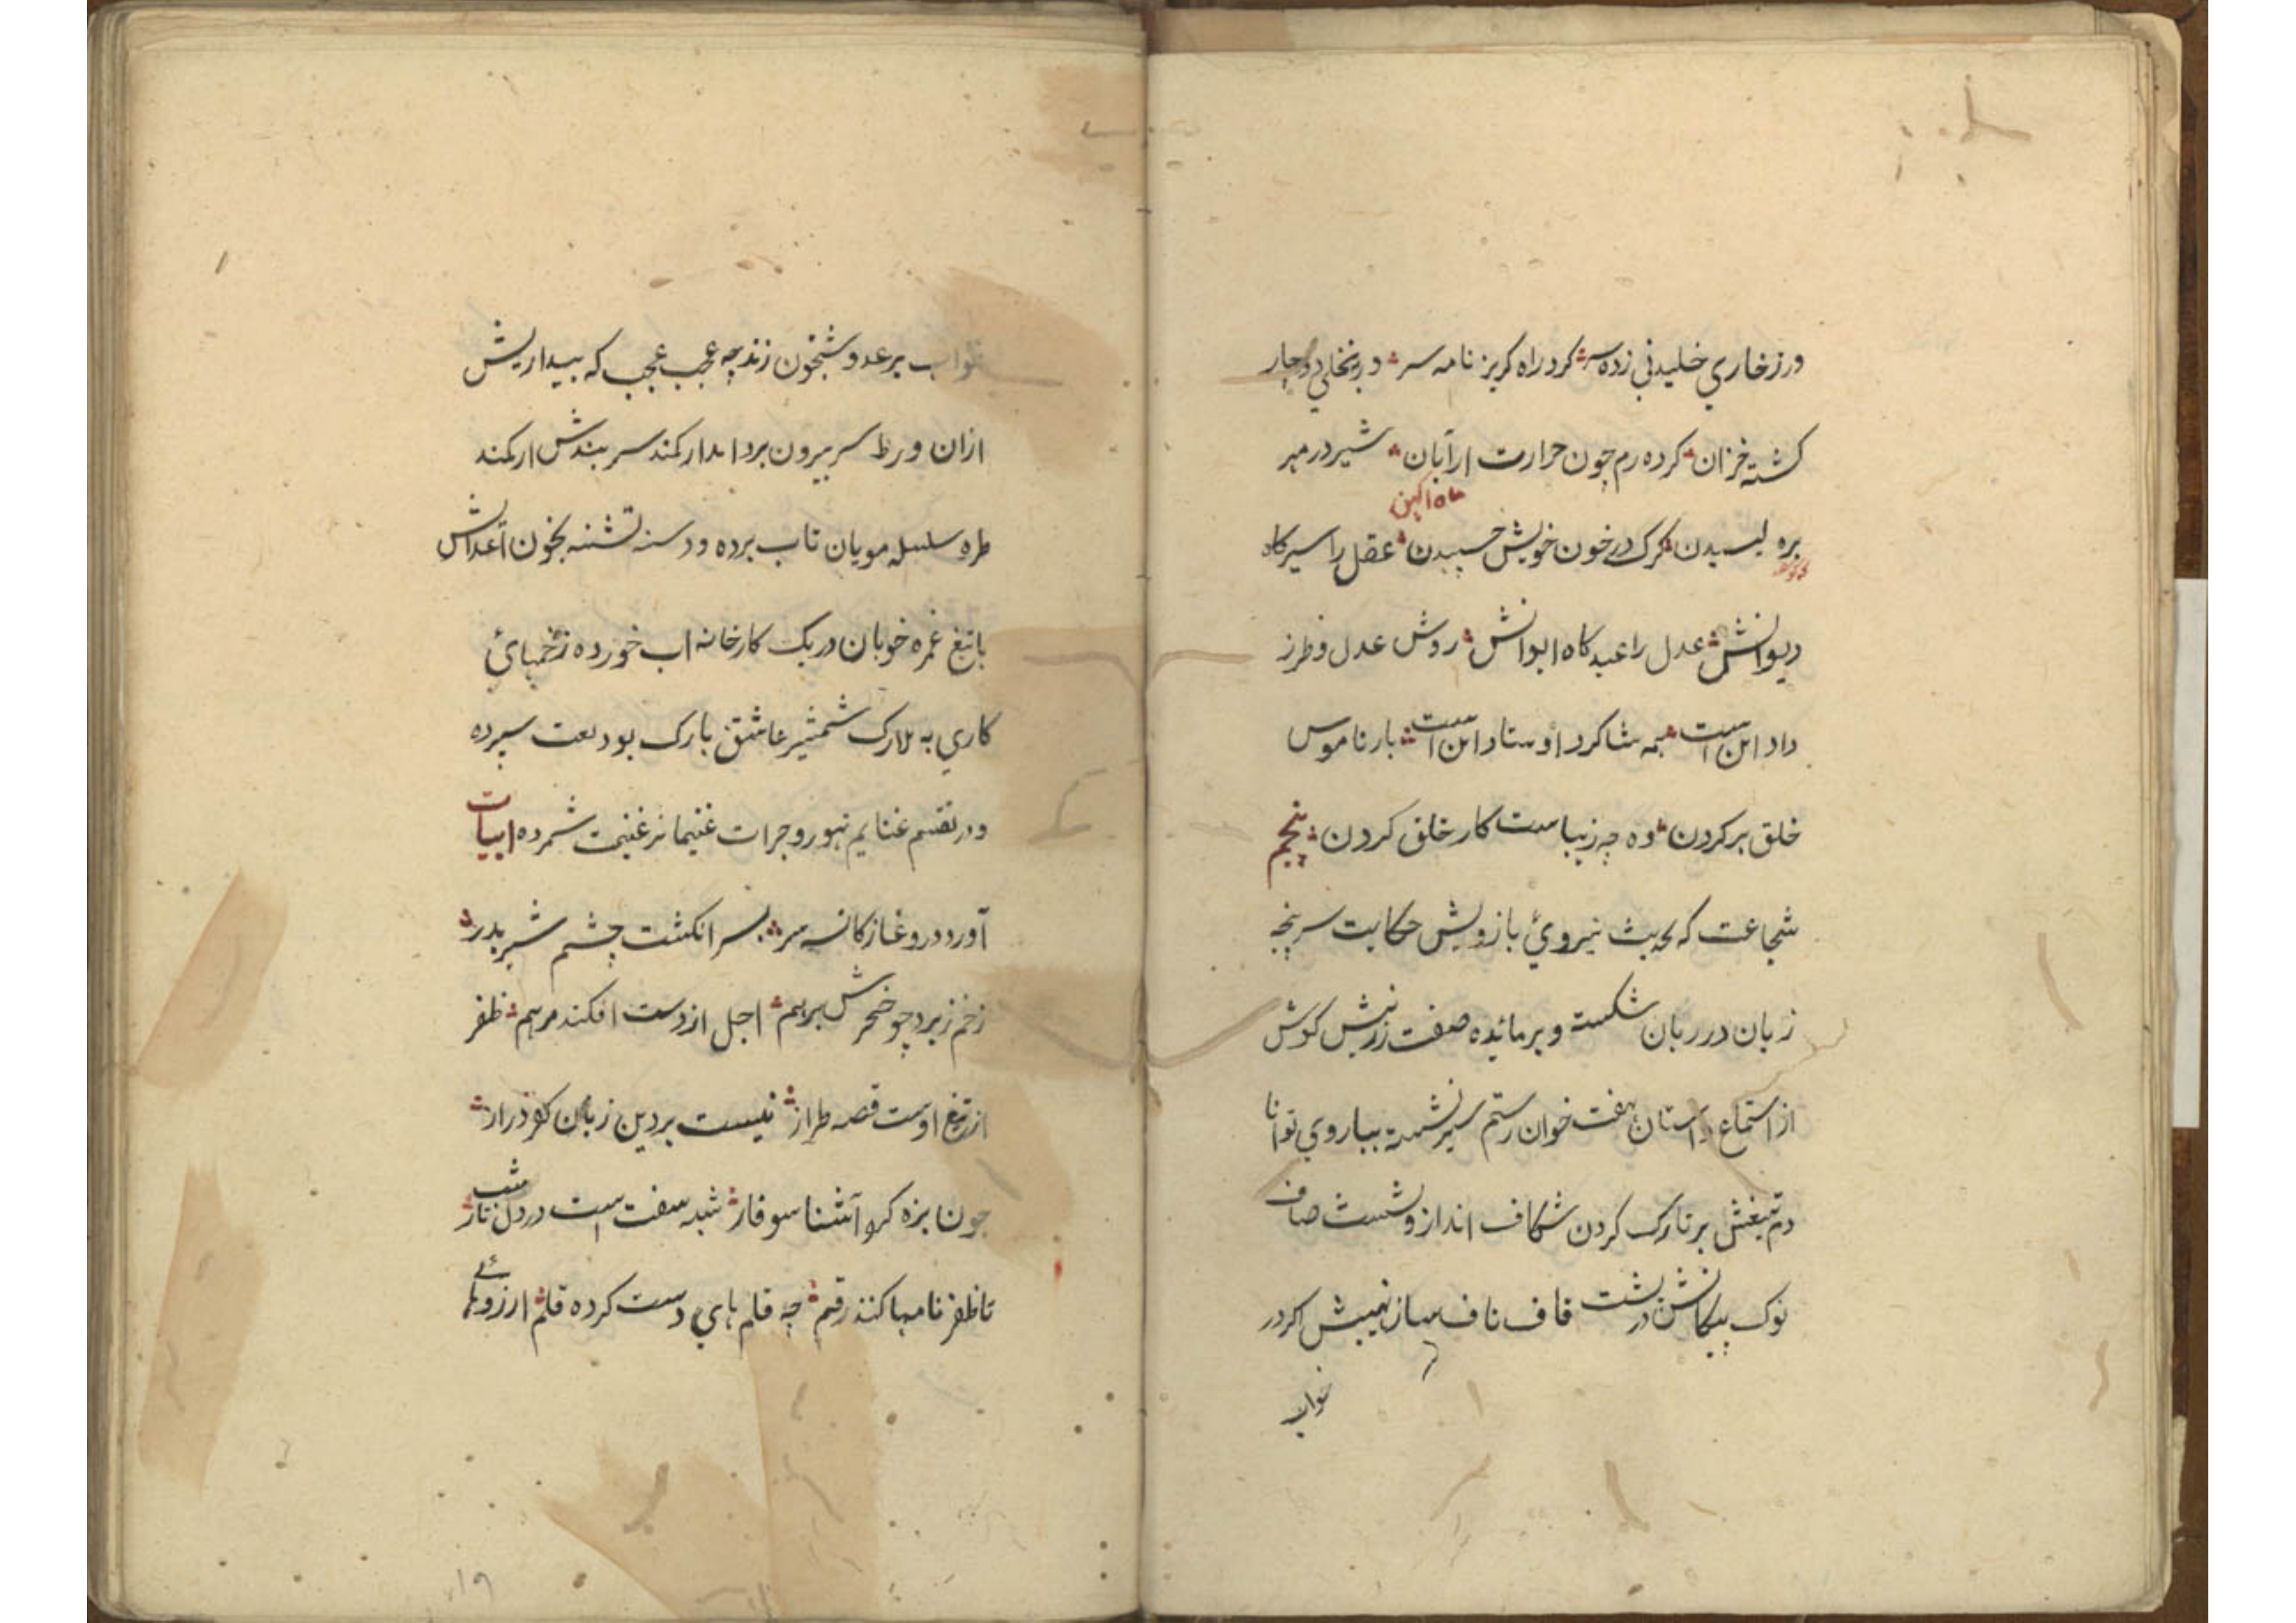 ورز خاري خلیدني زده سر کرد راه کریز نامه سر در نخلي دوچار
کشته خزان کرده رم چون حرارت از آبان شیر در مهر
ماه اکهن
بره لیسیدن کرک در خون خویش چسپیدن عقل را سیرکاه
دیوانش عدل را عیدکاه ایوانش روش عدل و طرز
داد این است همه شاکرد اوستاد این است بار ناموس
خلق بر کردن وه چه زیباست کار خلق کردن پنجم
شجاعت که بحدیث نیروئ بازویش حکایت سرپنجه
زبان در زبان شکسته و بر مائده صفت رزمش کوش
از استماع داستان هفت خوان رستم سیر نشسته ببازوي توانا
دم تیغش بر تارک کردن شکاف انداز و شست صاف
نوک پیکانش در پشت قاف ناف ساز نهیبش اکر در
خواب
خواب بر عدو شبخون زند چه عجب عجب که بیداریش
ازان ورط سر بیرون برد امدار کمند سر بندش ار کمند
طره سلسله مویان تاب برده و دسنه تشنه بخون اعداش
با تیغ غمزه خوبان در یک کارخانه اب خورده زخمهائ
کاري به بلارک شمشیر عاشق بارک بودیعت سپرده
و در تقسیم غنایم تهور و جرات غنیمانر غنیمت شمرده ابیات
آورد در وغا ز کاسه سر بسر انکشت چشم شیر بدر
زخم زیرد چو خنجرش برهم اجل از دست افکند مرهم ظفر
از تیغ اوست قصه طراز نیست بر دین زبان کفر دراز
چون بزه کرد آشنا سوفار شبه سفت است در دل شب تار
تا ظفر نامها کند رقم چه قلم هاي دست کرده قلم ارزوئے
۱۹